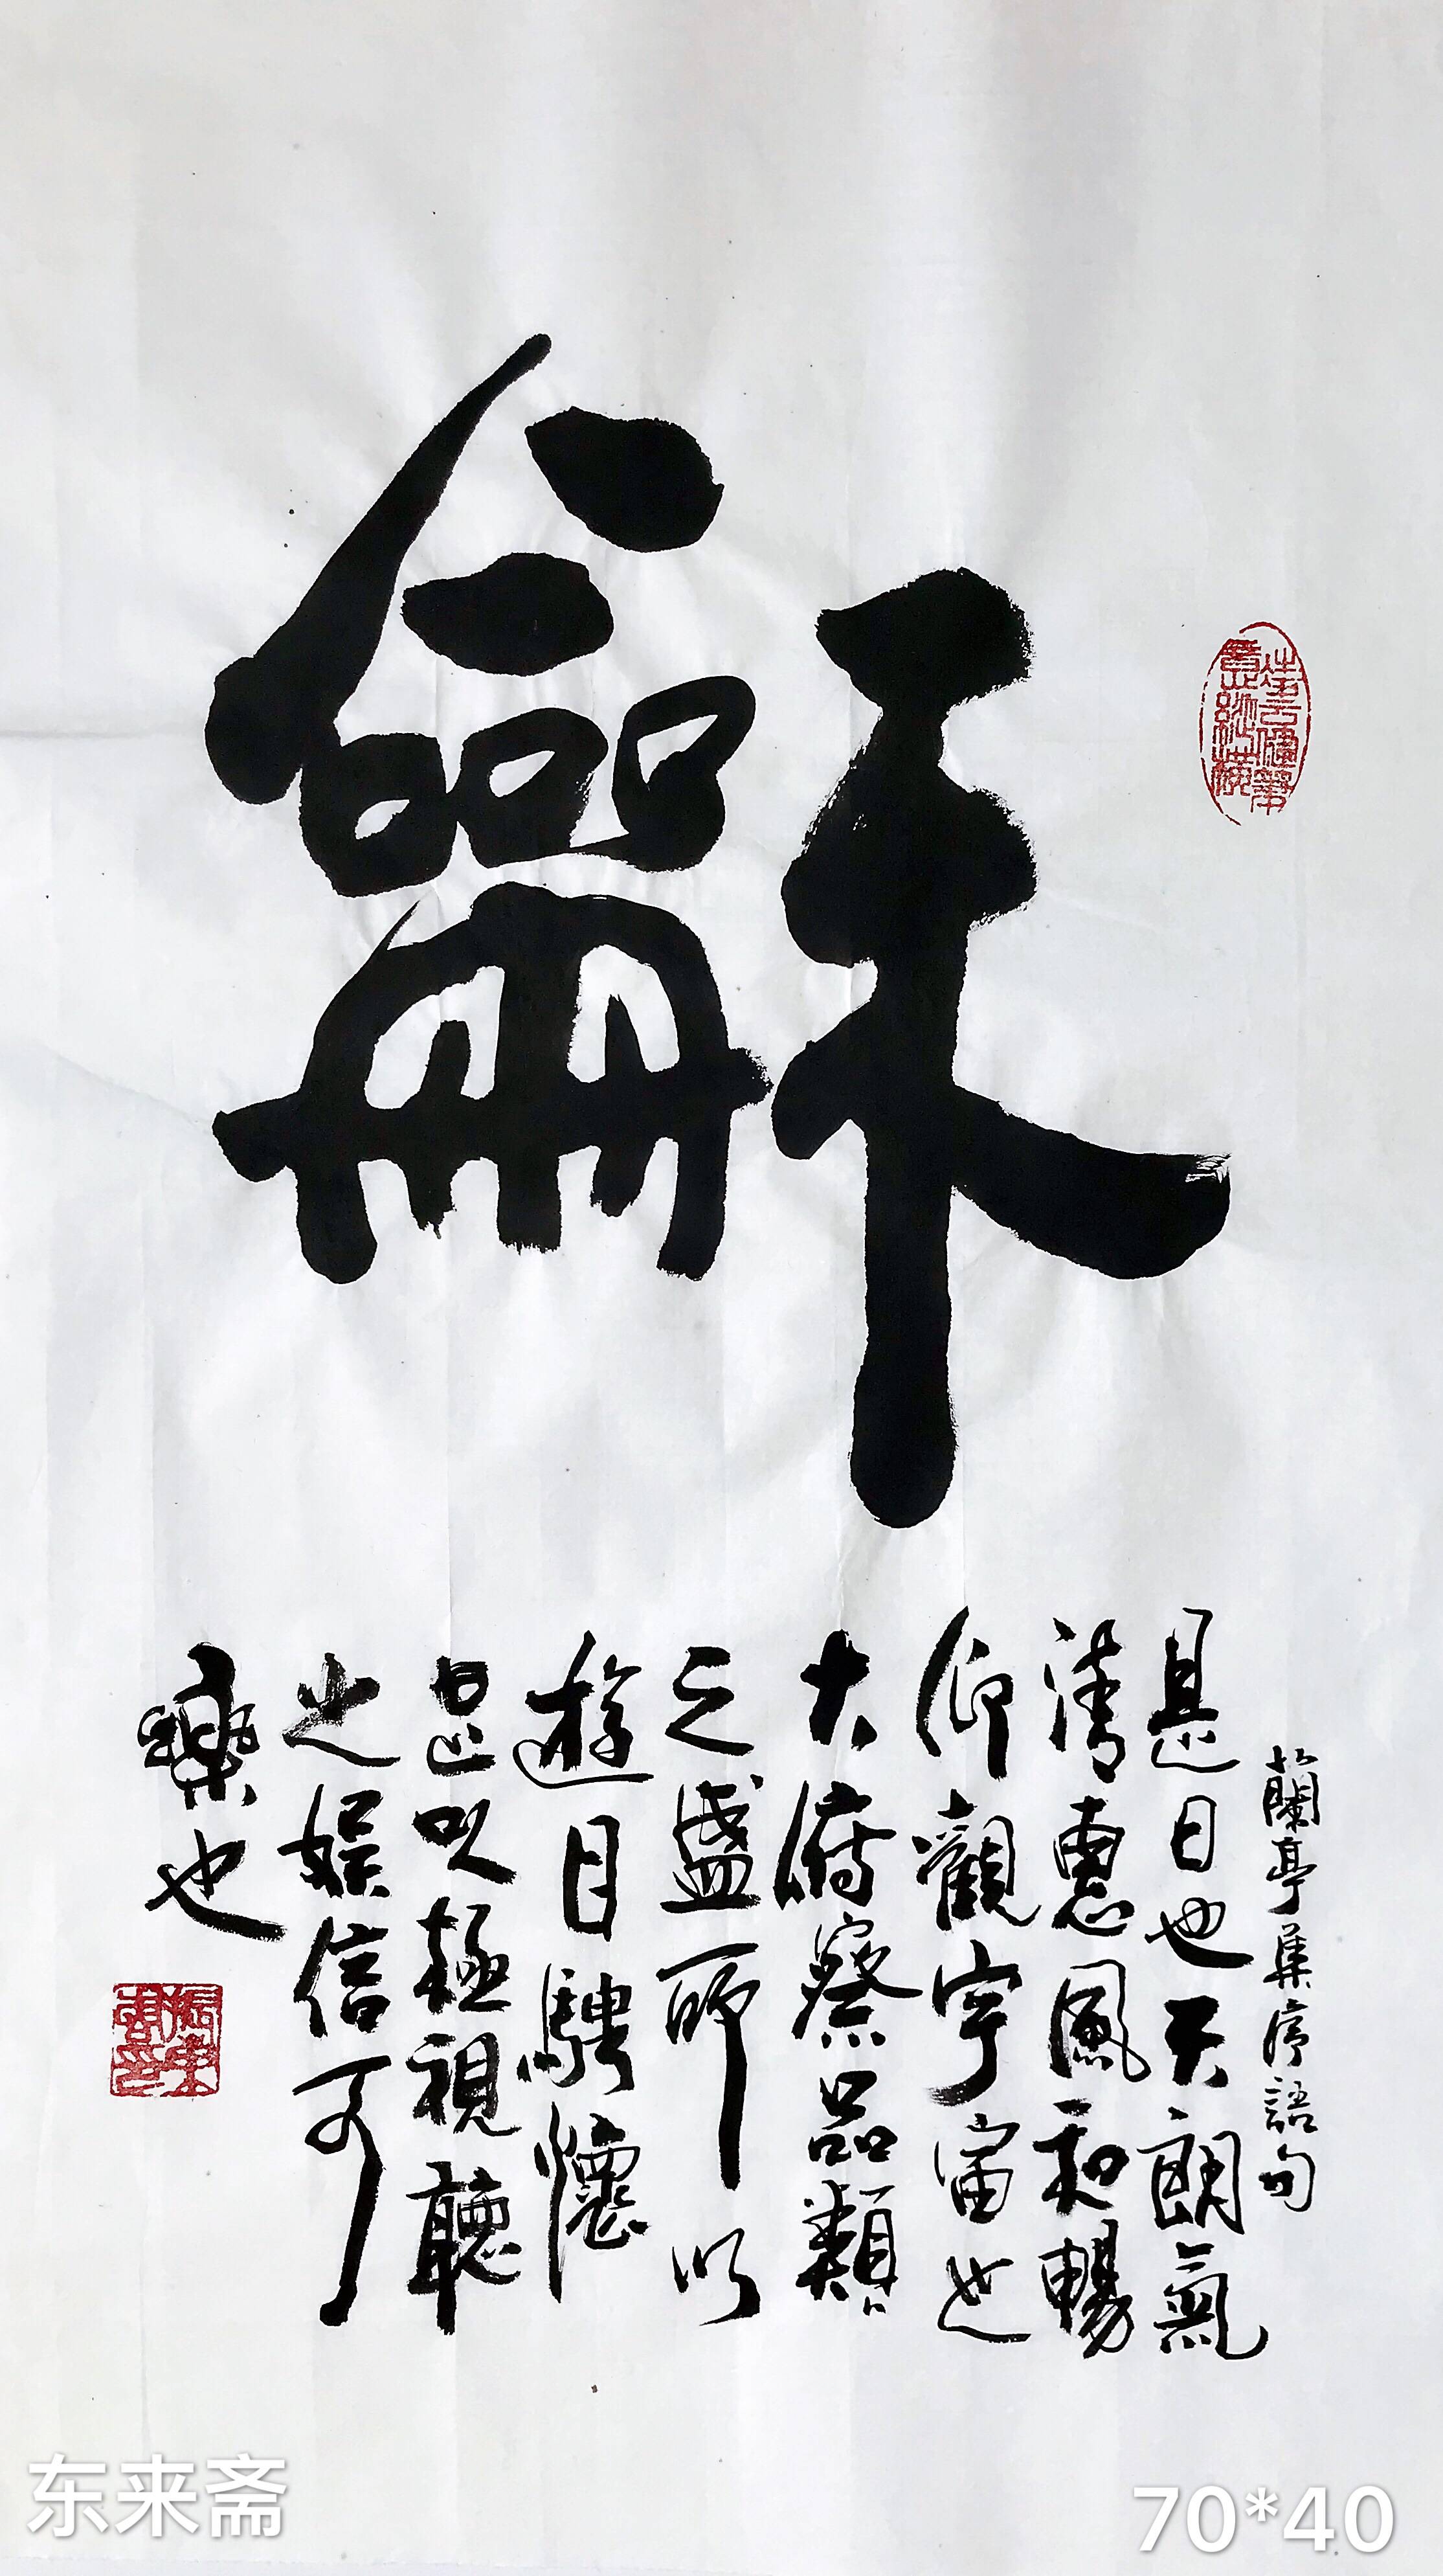 龢
蘭亭集序語句
是日也天朗氣
清惠風和暢
仰觀宇宙之
大俯察品類
之盛所以
遊目騁懷
足以極視聽
之娛信可
樂也
东来斋
70*40